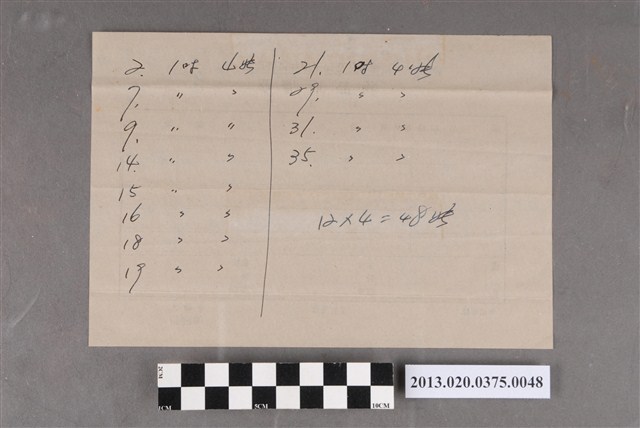 2. 1叶 4
7. 〃 〃
9. 〃 〃
14. 〃 〃
15 〃 〃
16 〃 〃
18 〃 〃
19 〃 〃
21. 4
29. 〃 〃
31. 〃 〃
35. 〃 〃
12×4=48
1CM 5CM 10CM
2013.020.0375.0048